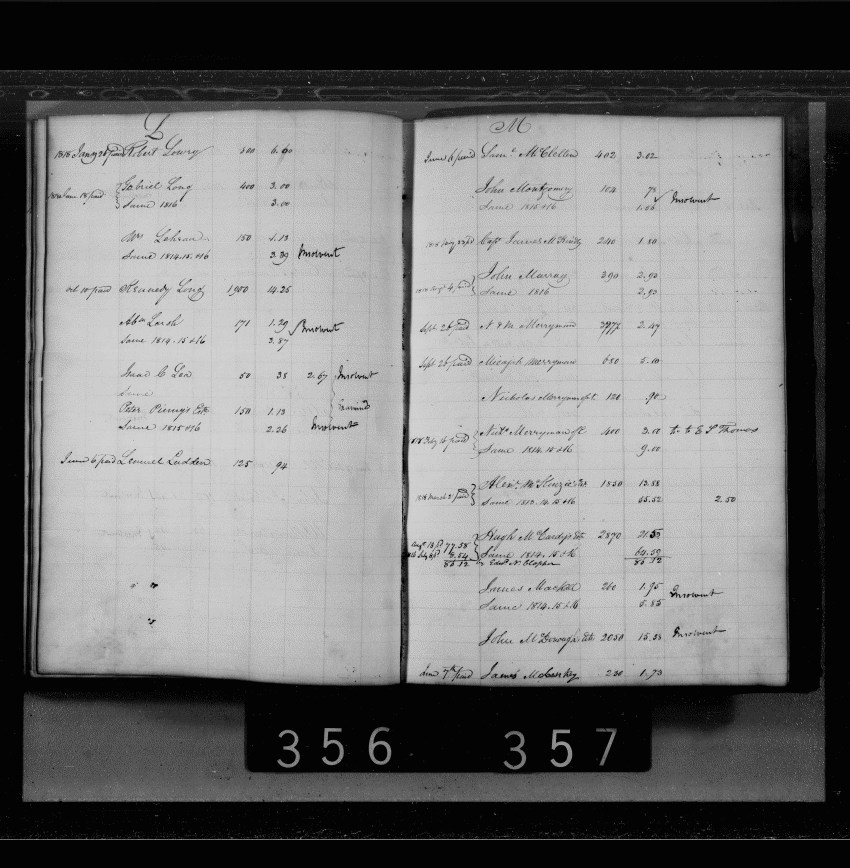 L
1818 Jany 26 paid Robert Lowry 800 6.00
1818 June 18 paid Gabriel Long 400 3.00
Same 1816 3.00
Mrs 150 1.13
Same 1814.15.&16 3.39 Insolvent
Oct 10 paid Kennedy Long 1900 14.25
Abm Larsh 171 1.29
Same 1814.15&16 3.87 Insolvent
Isaac C Lea 50 38 2.67 Insolvent
Same
Peter Esta 150 1.13
Same 1815&16 2.26 Insolvent
June 6 paid Lemuel Ludden 125 94
M
June 6 paid Saml McClellen 402 3.02
John Montgomery 104 78
Same 1815&16 1.56 Insolvent
Capt James 240 1.80
Augt 4 paid John Murray 390 2.93
Same 1816 2.93
Sept 26 paid N & M Merryman 2.47
Sept 26 paid Micajah Merryman 680 5.10
Nicholas Merryman 120 .90
1818 Feby 16 paid Nichs Merryman 400 3.00 to E S Thomas
Same 1814.15&16 9.00
1818 March 2 paid Alexr McKenzie 1850 13.88
Same 65.52 2.50
Augt 13 pd 77.58 Hugh McCurdy's Est 2870 21.53
8.54 Same 1814.15&16 64.59
86.12 Edwd N. Clopper 86.12
James Mackel 260 1.95
Same 1814.15&16 5.85 Insolvent
John McDonough Est 2050 15.38 Insolvent
June 7th paid James 230 1.73
356 357